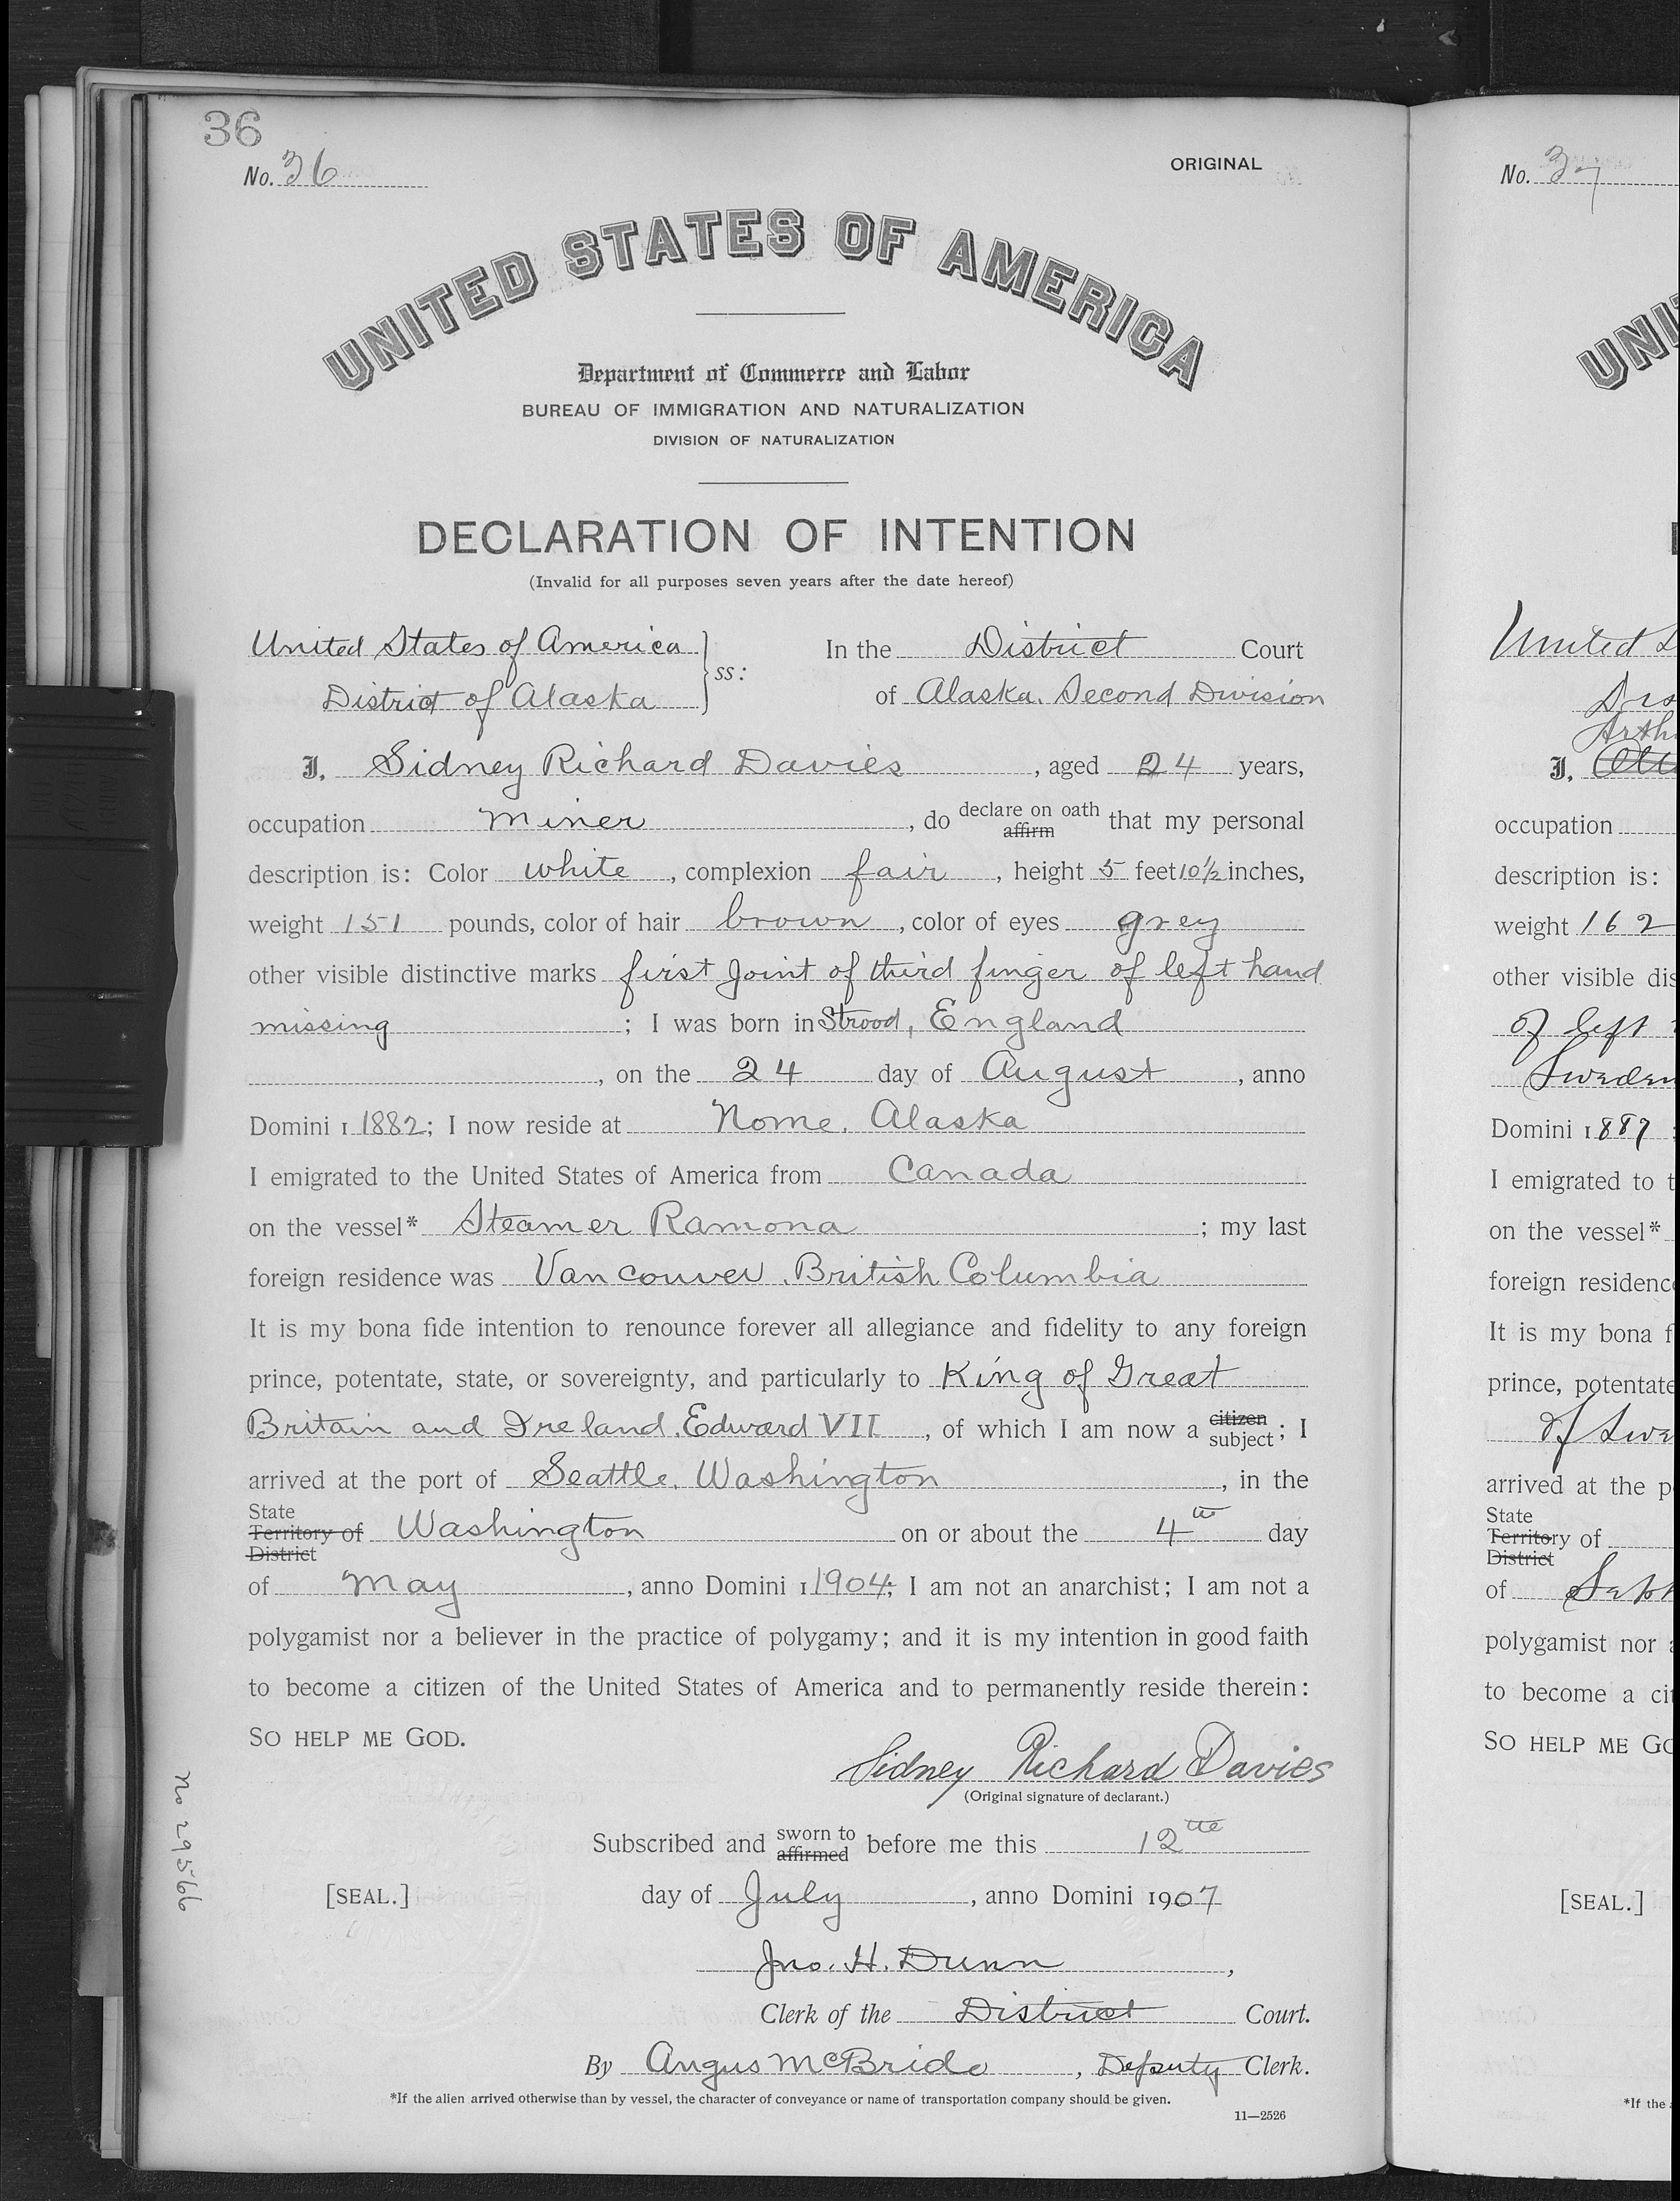 36
No. 36
ORIGINAL
UNITED STATES OF AMERICA
Department of Commerce and Labor
BUREAU OF IMMIGRATION AND NATURALIZATION
DIVISION OF NATURALIZATION
DECLARATION OF INTENTION
(Invalid for all purposes seven years after the date hereof)
United States of America } ss: In the District Court
District of Alaska of Alaska. Second Division
I, Sidney Richard Davies, aged 24 years,
occupation miner, do declare on oath affirm that my personal
description is: Color white, complexion fair, height 5 feet 10½ inches,
weight 151 pounds, color of hair brown, color of eyes grey
other visible distinctive marks first joint of third finger of left hand
missing; I was born in Strood, England
, on the 24 day of August, anno
Domini 1 1882; I now reside at Nome, Alaska
I emigrated to the United States of America from Canada
on the vessel* Steamer Ramona; my last
foreign residence was Vancouver, British Columbia
It is my bona fide intention to renounce forever all allegiance and fidelity to any foreign
prince, potentate, state, or sovereignty, and particularly to King of Great
Britain and Ireland, Edward VII, of which I am now a citizen subject; I
arrived at the port of Seattle, Washington, in the
State Territory of District Washington on or about the 4th day
of May, anno Domini 1 1904; I am not an anarchist; I am not a
polygamist nor a believer in the practice of polygamy; and it is my intention in good faith
to become a citizen of the United States of America and to permanently reside therein:
SO HELP ME GOD.
Sidney Richard Davies
(Original signature of declarant.)
Subscribed and sworn to affirmed before me this 12th
[SEAL.] day of July, anno Domini 1907
Jno. H. Dunn,
Clerk of the District Court.
By Angus McBride, Deputy Clerk.
*If the alien arrived otherwise than by vessel, the character of conveyance or name of transportation company should be given.
11—2526
No 29566
No. 37
UNI
United
I,
occupation
description is:
weight 162
other visible dis
of left
Sweden
Domini 1887
I emigrated to t
on the vessel*
foreign residenc
It is my bona f
prince, potentate
of Swe
arrived at the p
State
Territory of
District
of Sept
polygamist nor a
to become a cit
SO HELP ME GO
[SEAL.]
*If the